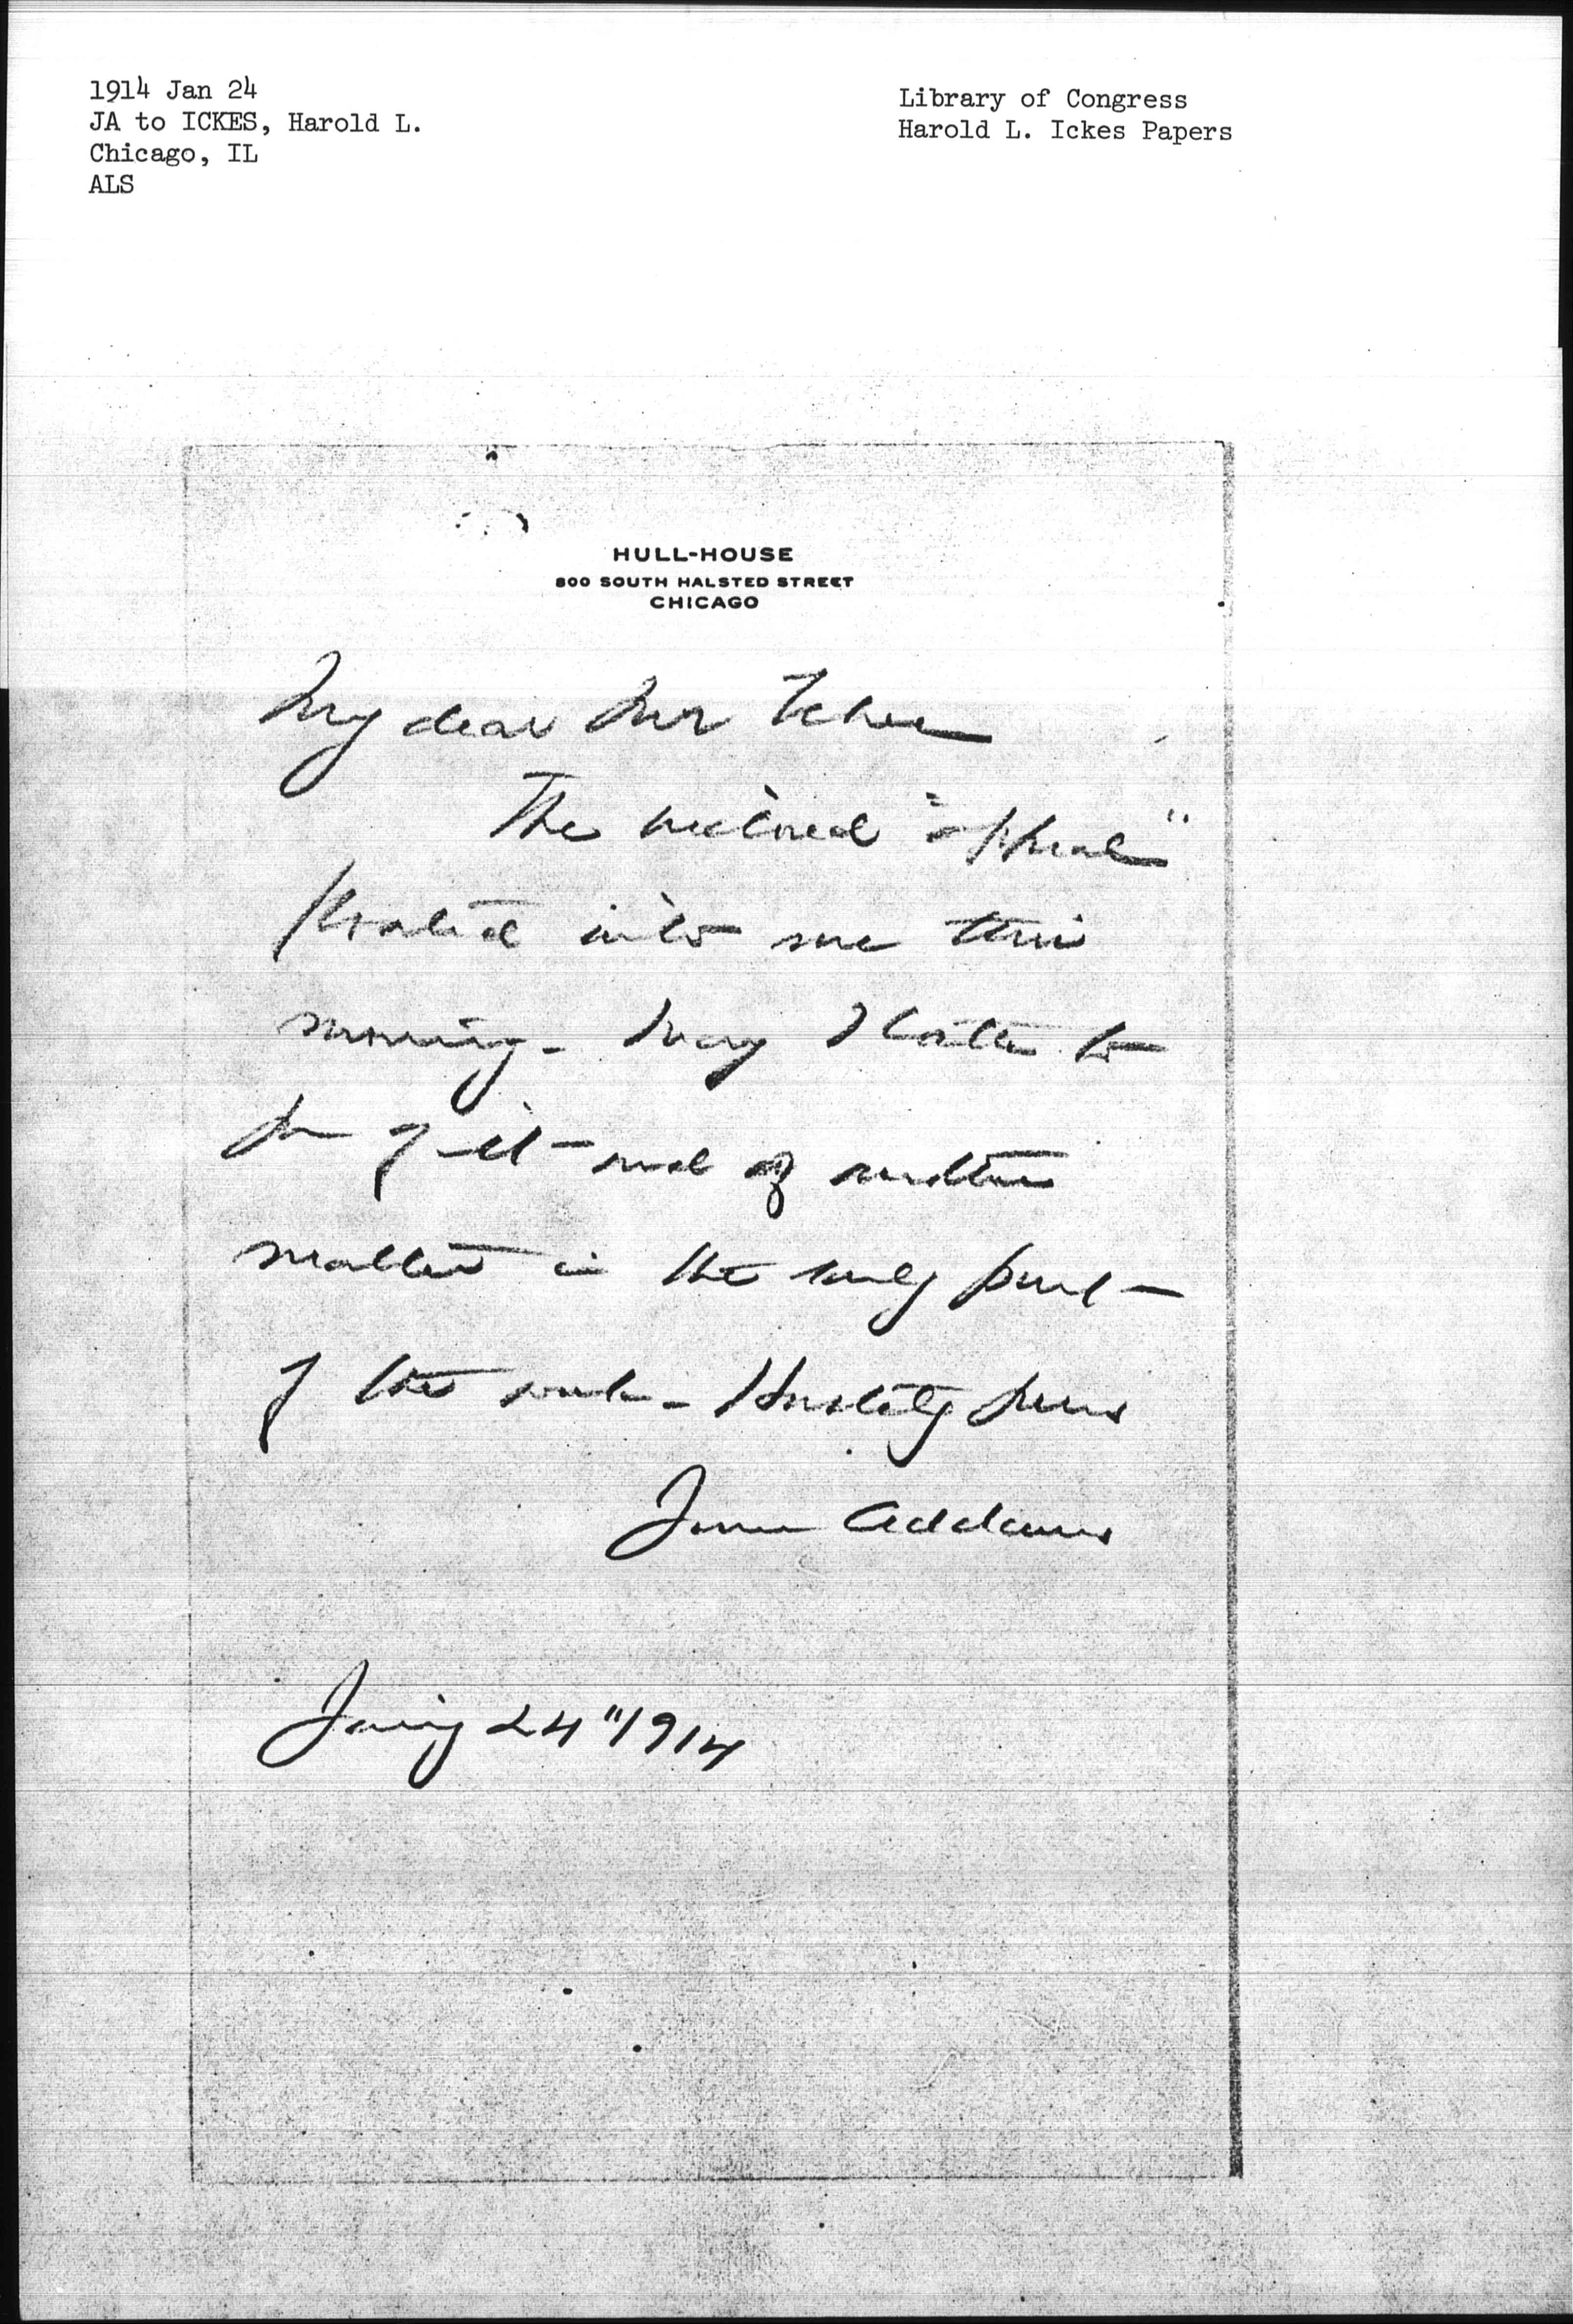 1914 Jan 24
JA to ICKES, Harold L.
Chicago, IL
ALS
Library of Congress
Harold L. Ickes Papers
HULL-HOUSE
800 SOUTH HALSTED STREET
CHICAGO
My dear Mr Ickes
The enclosed "appeal"
into me this
morning - May I talk to
you of it and of another
matter in the early part
of the week - Hastily yours
Jane Addams
Jan'y 24" 1914